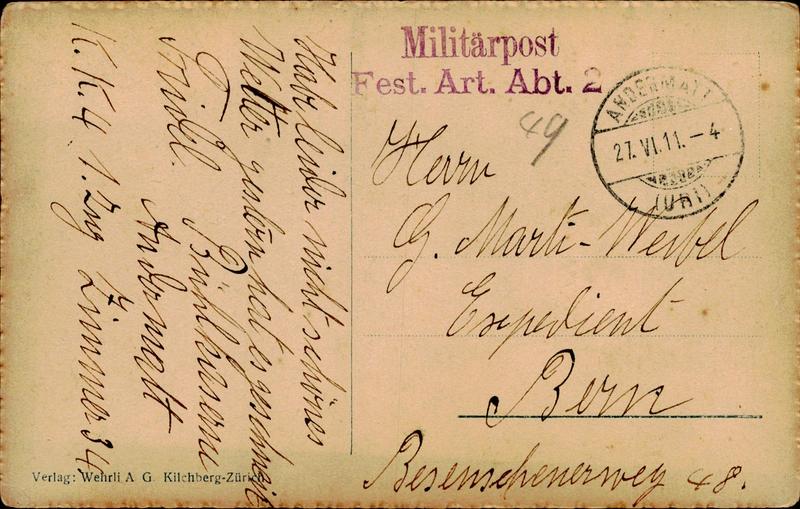 Militärpost
Fest. Art. Abt. 2
ANDERMATT
27. VI. 11. – 4
(URI)
49
Herrn
G. Marti-Weibel
Expedient
Bern
Besenscheuerweg 48.
Habe leider nicht schönes
Wetter gestern hat es geschneit
Bühlkaserne
Andermatt
K.K 4 1. Zug Zimmer 34
Verlag: Wehrli A G. Kilchberg-Zürich